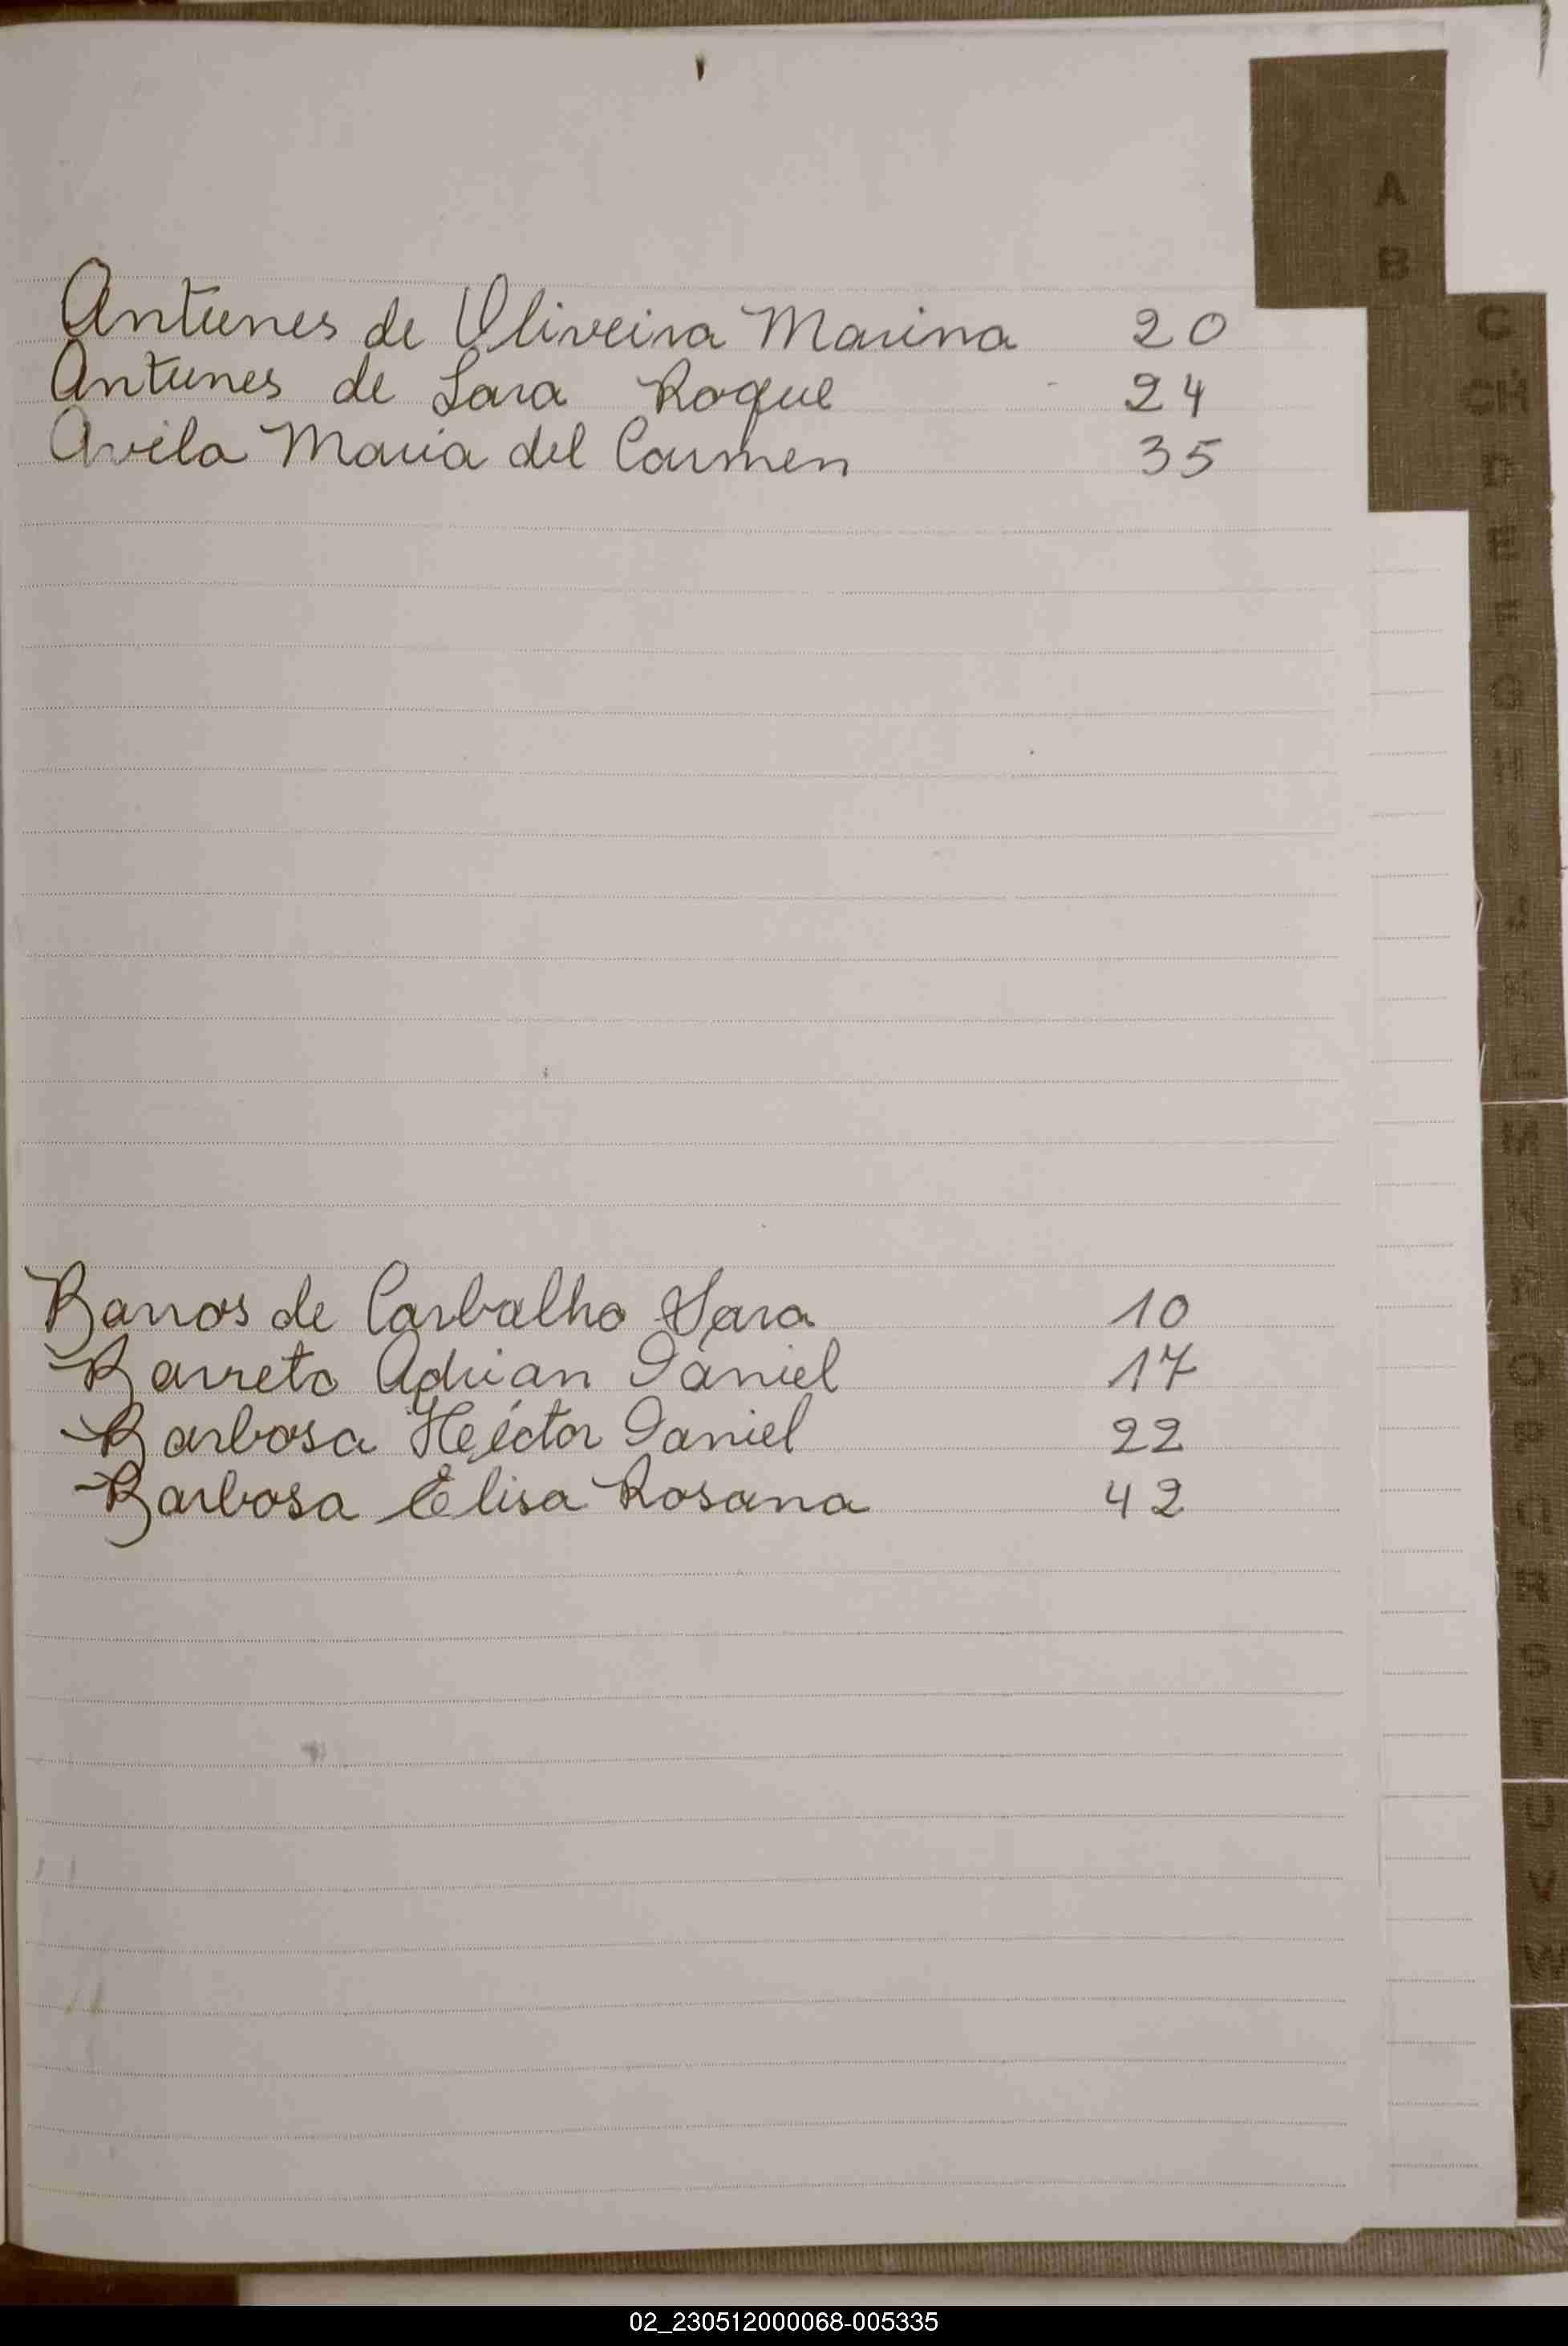 A
B
C
CH
D
E
F
G
H
Antunes de Oliveira Marina 20
Antunes de Lara Roque 24
Avila Maria del Carmen 35
Barros de Carbalho Sara 10
Barreto Adrian Daniel 17
Barbosa Héctor Daniel 22
Barbosa Elisa Rosana 42
S
T
U
V
02_230512000068-005335